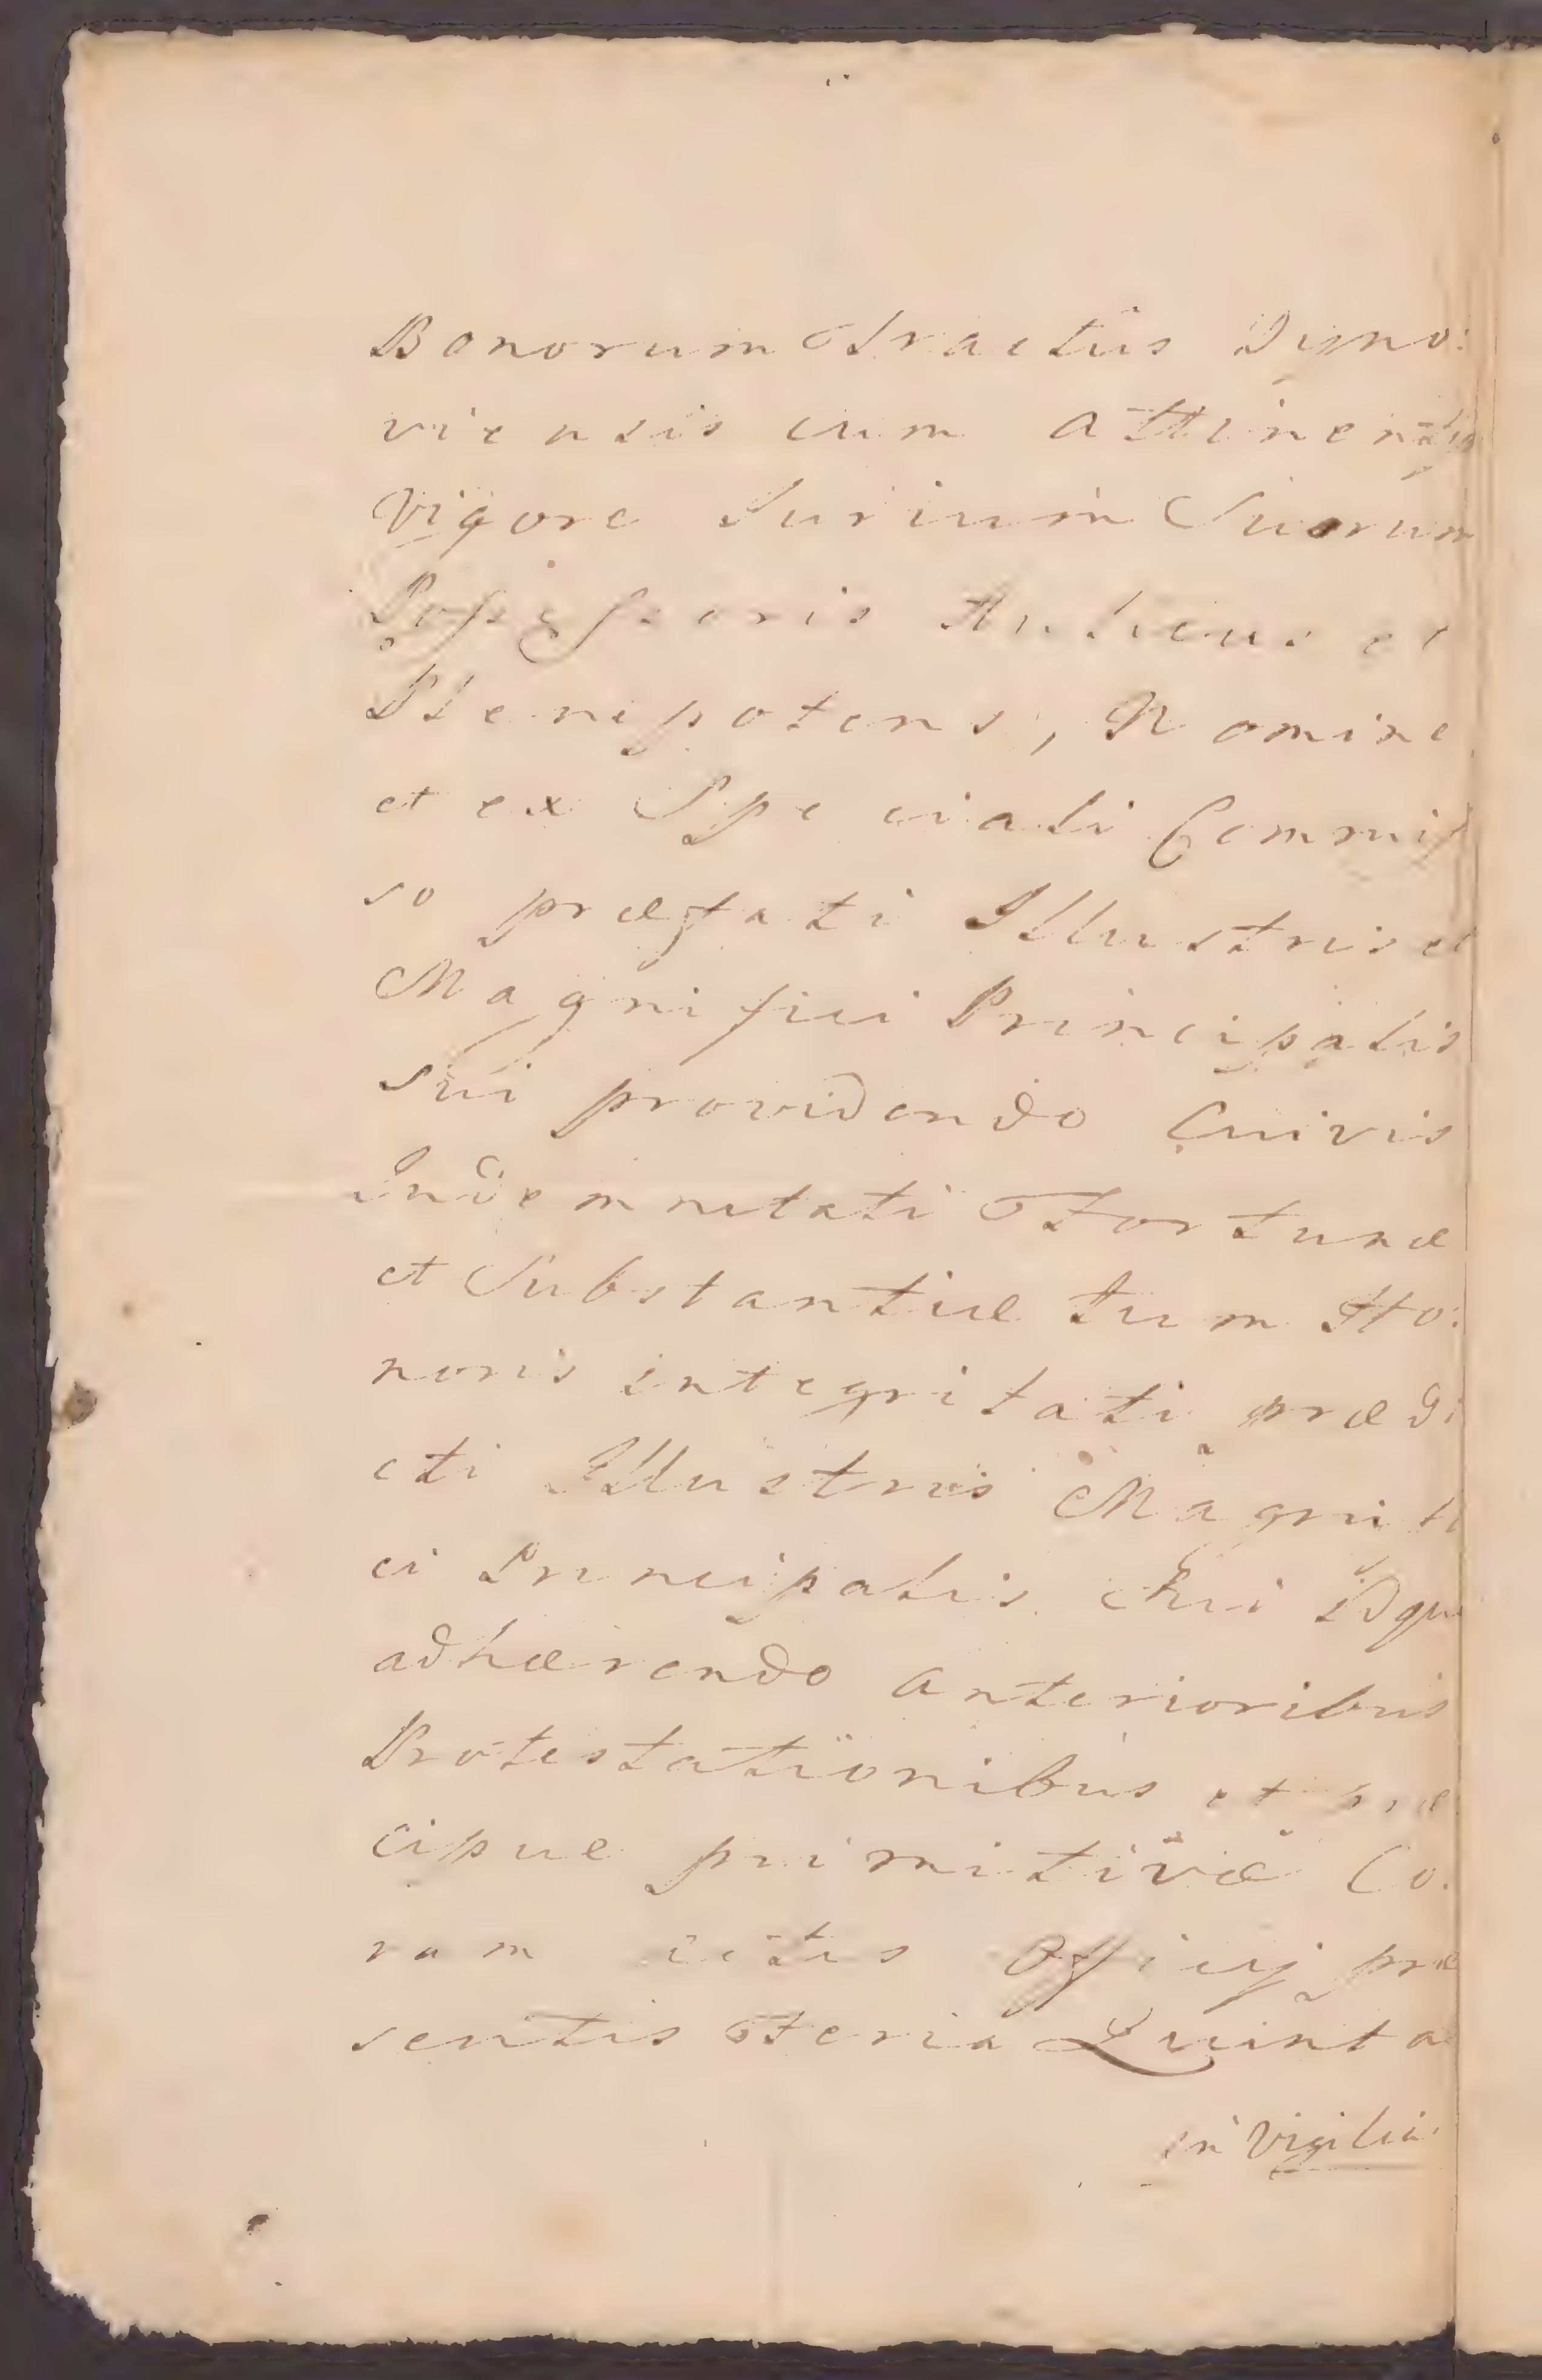 Bonorum Tractus Dyno:
viensis cum attinentijs
Vigore Jurium Suorum
Possessoris Aulicus et
Plenipotens, Nomine
et ex Speciali Commis
so præfati Illustris et
Magnifici Principalis
sui providendo Cuivis
Indemnitati Fortunæ
et Substantiæ tum Ho:
noris integritati prædi
cti Illustris Magnifi
ci Principalis Sui idque
adhærendo anterioribus
Protestationibus et præ
cipue primitivæ Co.
ram actis Officij præ
sentis Feria Quinta
in Vigilia